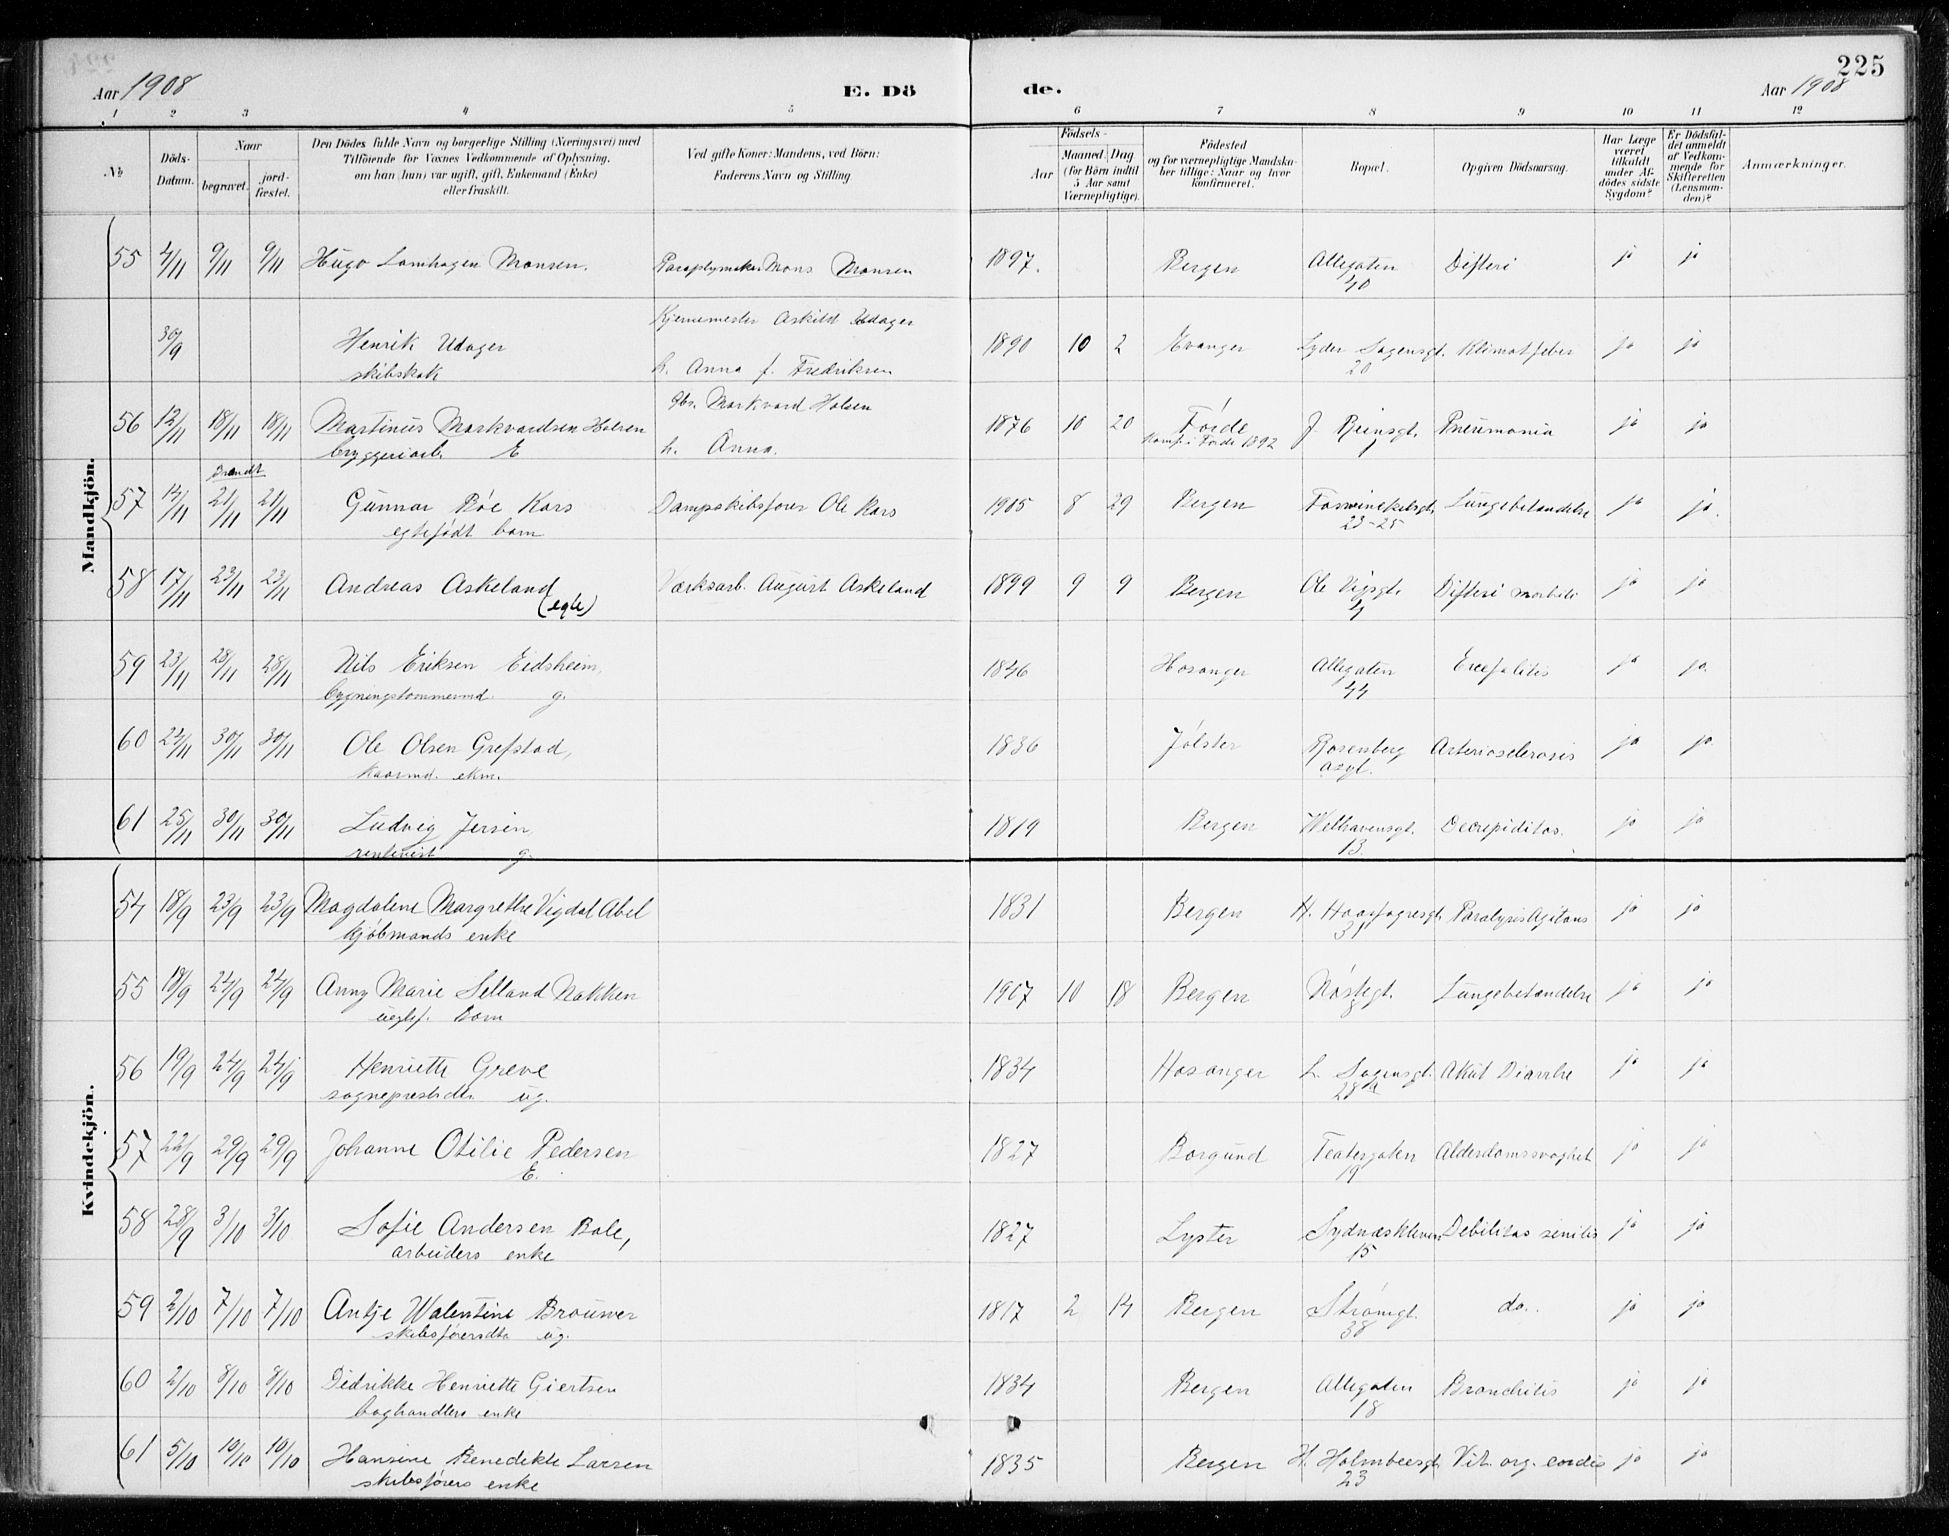 225
Aar 1908 E. Dö de. Aar 1908
1 2 3 4 5 6 7 8 9 10 11 12
№ Döds-Datum. Naar begravet. jord-fæstet. Den Dödes fulde Navn og borgerlige Stilling (Næringsvei) med Tilföiende for Voxnes Vedkommende af Oplysning, om han (hun) var ugift, gift, Enkemand (Enke) eller fraskilt. Ved gifte Koner: Mandens, ved Börn: Faderens Navn og Stilling. Födsels- Aar Maaned. Dag (for Börn indtil 5 Aar samt Værnepligtige). Födested og for værnepligtige Mandskaber tillige: Naar og hvor konfirmeret. Bopæl. Opgiven Dödsaarsag. Har Læge været tilkaldt under Afdödes sidste Sygdom? Er Dödsfaldet anmeldt af Vedkommende for Skifteretten (Lensmanden)? Anmærkninger.
Mandkjön.
55 4/11 9/11 9/11 Hugo Monsen. Mons Monsen 1897. Bergen Allegaten Difteri ja ja
40
Kjernemester Askild Udager
30/9 Henrik Udager 1890 10 2 Evanger Lyder Sagensgt. Klimatfeber ja ja
skibskok h. Anna f. Fredriksen 20
gbr. Markvard Halsen
56 12/11 18/11 18/11 Martinus Markvardsen Halsen 1876 10 20 Førde J. Reinsgt. Pneumonia ja ja
bryggeriarb. E h. Anna. Konf. i Førde 1892 1
Brandt
57 14/11 21/11 21/11 Gunnar Bøe Kars Dampskibsfører Ole Kars 1905 8 29 Bergen Lungebetændelse ja ja.
egtefødt barn 23-25
58 17/11 23/11 23/11 Andreas Askeland Værksarb. August Askeland 1899 9 9 Bergen Ole Vigsgt. Difteri morbili ja ja
(egte) 4
59 23/11 28/11 28/11 Nils Eriksen Eidsheim, 1846 Hosanger Allegaten Encefalitis ja ja.
bygningstømmermd. g. 44
60 24/11 30/11 30/11 Ole Olsen Grefstad, 1836 Jølster Rosenberg Arteriosclerosis ja ja
kaarmd. ekm. asyl.
61 25/11 30/11 30/11 Ludvig Jersin, 1819 Bergen Welhavensgt. Decrepiditas. ja ja
rentenist g. 13.
Kvindekjön.
54 18/9 23/9 23/9 Magdalene Margrethe Vigdal Abel 1831 Bergen H. Haarfagresgt. Paralysis Agitans ja ja
kjøbmands enke 31
55 18/9 24/9 24/9 Anny Marie Selland Nakken 1907 10 18 Bergen Nøstegt. Lungebetændelse ja ja
uegtef. Barn 8
56 19/9 24/9 24/9 Henriette Greve 1834 Hosanger L. Sagensgt. Akut Diarrhe ja ja
sogneprestdtr. ug. 28a
57 22/9 29/9 29/9 Johanne Otilie Pedersen 1827 Borgund Teatergaten Alderdomssvaghet ja ja
E. 19
58 28/9 3/10 3/10 Sofie Andersen Bole, 1827 Lyster Sydnæskleven Debilitas senilis ja ja
arbeiders enke 15
59 2/10 7/10 7/10 Antje Walentine Brouwer 1817 2 14 Bergen Strømgt. do. ja ja
skibsførerdtr ug. 38
60 2/10 8/10 8/10 Didrikke Henriette Giertsen 1834 Bergen Allegaten Bronchitis ja ja
boghandlers enke 18
61 5/10 10/10 10/10 Hansine Benedikte Larsen 1835 Bergen H. Holmboesgt. Vit. org. cordis ja ja
skibsførers enke 23